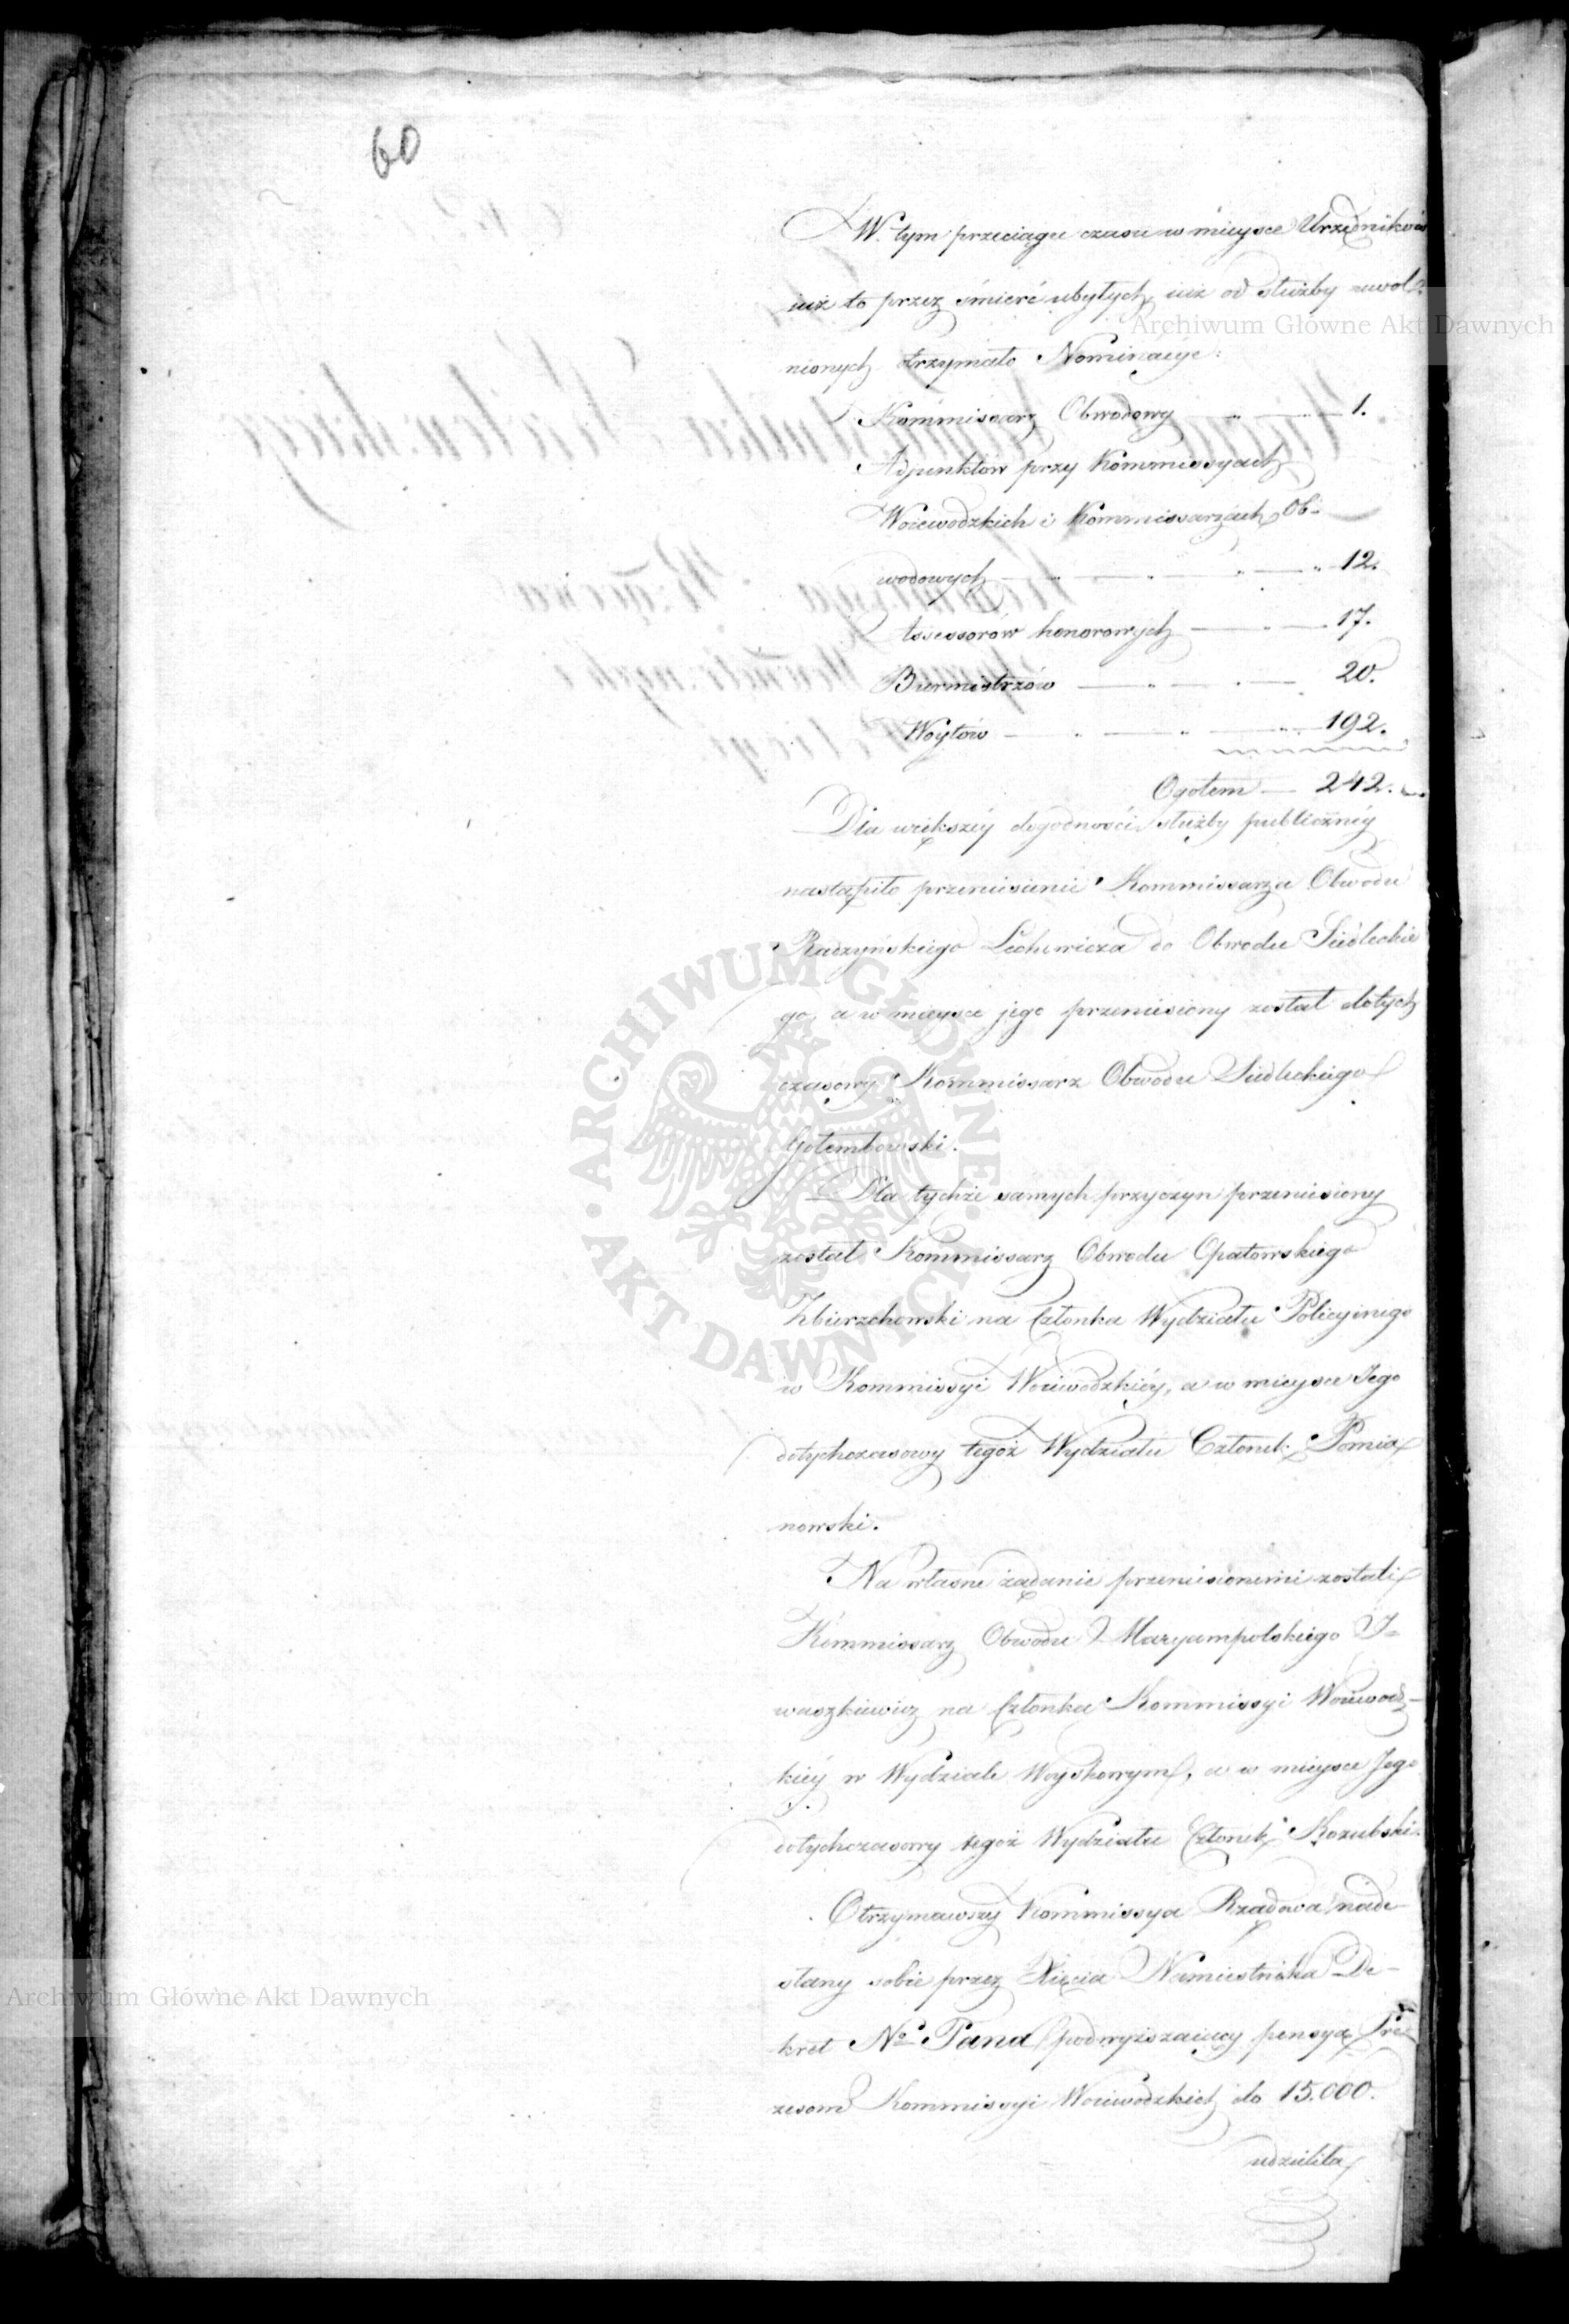 60
W. tym przeciągu czasu w mieysce Urzędników
iuż to przez śmierć ubyłych iuż od służby uwol-
nionych otrzymało Nominacye:
Kommissarz Obwodowy — " — 1.
Adjunktów przy Kommissyach
Woiewodzkich i Kommissarzach Ob-
wodowych — " — " — " — " 12.
Assessorów honorowych — " — 17.
Burmistrzów — " — " — 20.
Woytów — " — " — " 192.
Ogołem — 242.
Dla większéy dogodności służby publicznéy
nastąpiło przeniesienie Kommissarza Obwodu
Radzyńskiego Lechowicza do Obwodu Siedleckie
go, a w mieysce jego przeniesiony został dotych
czasowy Kommissarz Obwodu Siedleckiego
Gołembowski.
Dla tychże samych przyczyn przeniesiony
został Kommissarz Obwodu Opatowskiego
Zbierzchowski na Członka Wydziału Policyinego
w Kommissyi Woiewodzkiéy, a w mieysce Jego
dotychczasowy tegoż Wydziału Członek Pomia
nowski.
Na własne żądanie przeniesionemi zostali
Kommissarz Obwodu Maryampolskiego I-
waszkiewicz na Członka Kommissyi Woiewodz-
kiéy w Wydziale Woyskowym, a w mieysce Jego
dotychczasowy tegoż Wydziału Członek Kozubski.
Otrzymawszy Kommissya Rządowa nade-
słany sobie przez Xięcia Namiestnika De-
kret Nº Pana podwyższaiący pensyą Pre-
zesom Kommissyi Woiewodzkich do 15.000.
udzieliła
Archiwum Główne Akt Dawnych
Archiwum Główne Akt Dawnych
ARCHIWUM GŁÓWNE AKT DAWNYCH